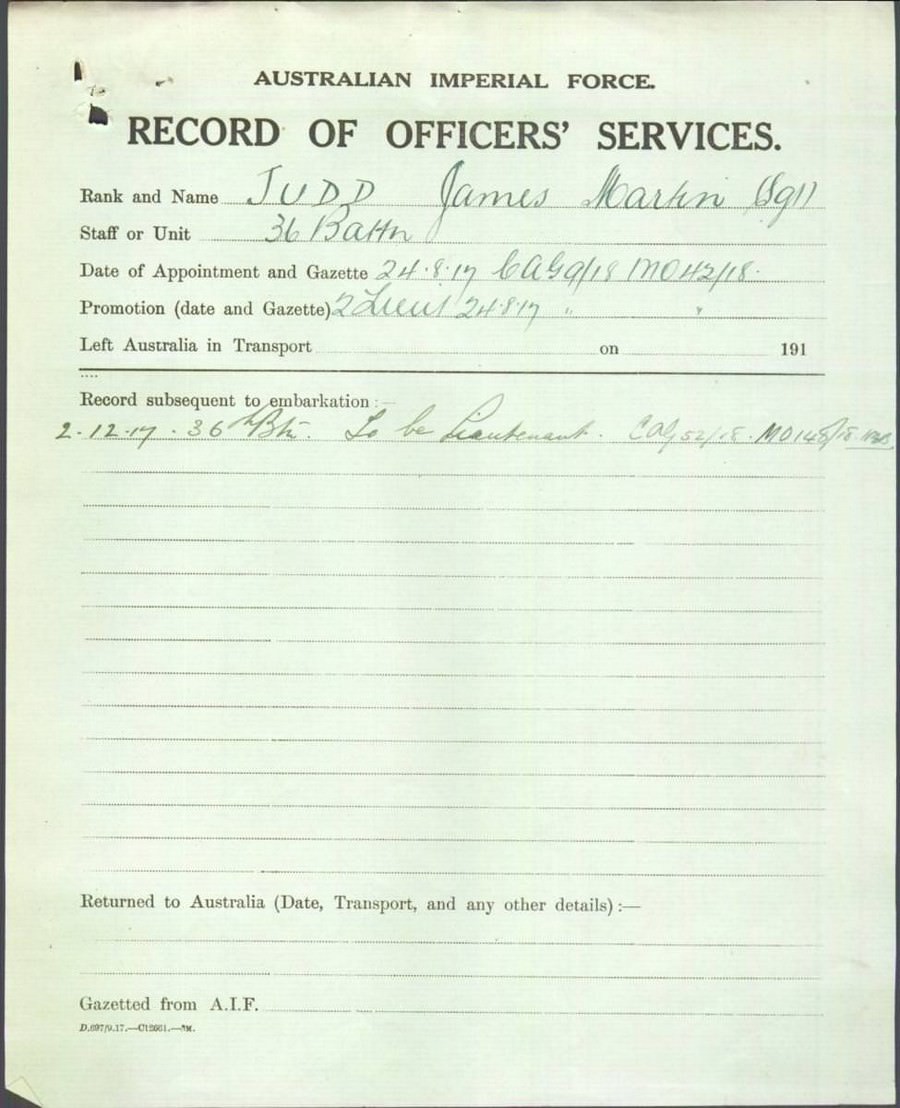 AUSTRALIAN IMPERIAL FORCE.
RECORD OF OFFICERS' SERVICES.
Rank and Name JUDD James Martin (Sgt)
Staff or Unit 36 Battn
Date of Appointment and Gazette 24.8.17 CAG 9/18 MO 42/18.
Promotion (date and Gazette) 2 Lieut 24.8.17 " "
Left Australia in Transport on 191
Record subsequent to embarkation :—
2.12.17. 36th Btn. To be Lieutenant. CAG 52/18. MO 148/18.
Returned to Australia (Date, Transport, and any other details) :—
Gazetted from A.I.F.
D.697/9.17.—C12661.—5M.